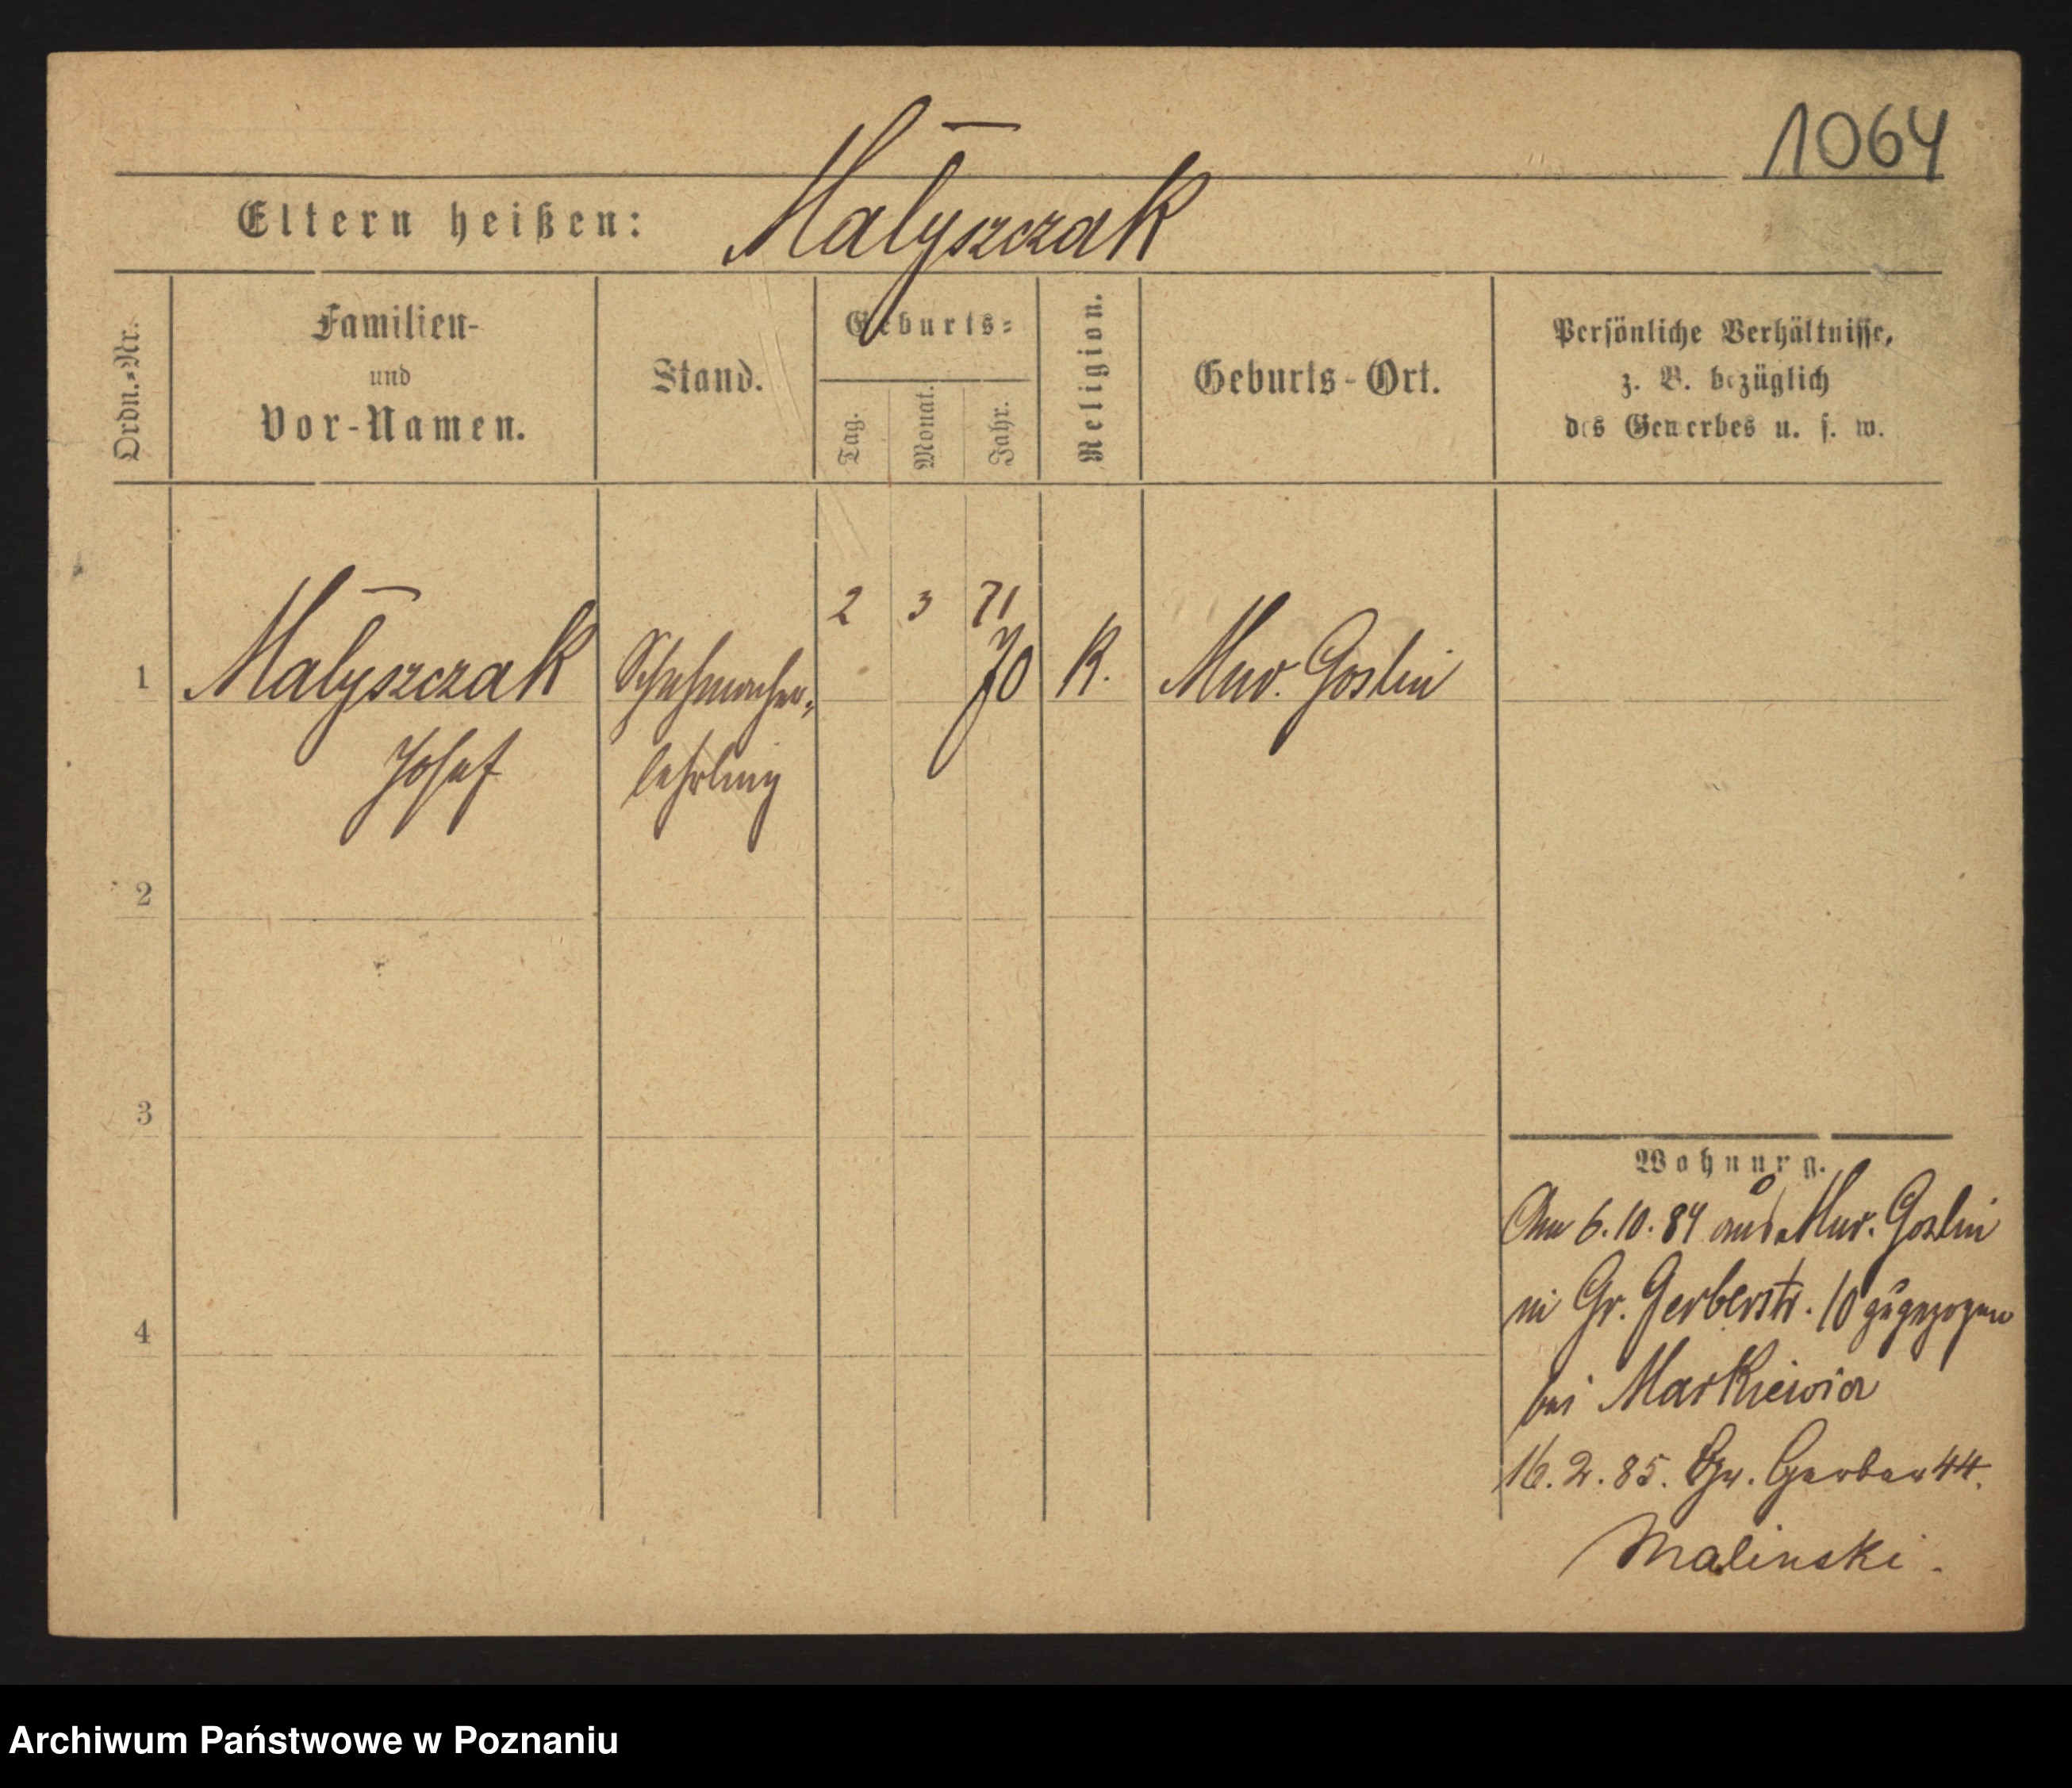 1064
Eltern heißen: Małyszczak
Ordn.-Nr.
Familien-
und
Vor-Namen.
Stand.
Geburts-
Tag.
Monat.
Jahr.
Religion.
Geburts-Ort.
Persönliche Verhältnisse,
z. B. bezüglich
des Gewerbes u. s. w.
2 3 71
1 Małyszczak Schuhmacher- 70 K. Mur. Goslin
Josef lehrling
2
3
4
Wohnung.
Am 6.10.84 aus Mur. Goslin
in Gr. Gerberstr. 10 zugezogen
bei Markiewicz
16.2.85. Gr. Gerber 44.
Malinski.
Archiwum Państwowe w Poznaniu